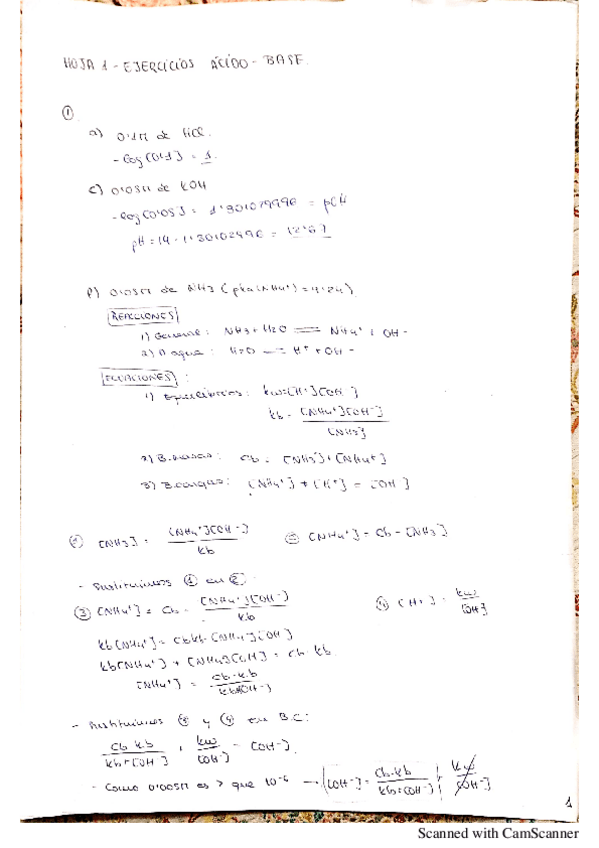 HOJA 1 - EJERCICIOS ÁCIDO - BASE.
①
a) 0'1M de HCl.
- log[0'1] = 1.
c) 0'05M de KOH
- log[0'05] = 1'301029996 = pOH
pH = 14 - 1'30102996 = 12'67
f) 0'05M de NH3 (pka(NH4+) = 9'24)
REACCIONES
1) General: NH3 + H2O ⇌ NH4+ + OH-
2) D agua: H2O ⇌ H+ + OH-
ECUACIONES:
1) Equilibrios: kw = [H+][OH-]
kb = [NH4+][OH-] / [NH3]
2) B.masas: Cb = [NH3] + [NH4+]
3) B.cargas: [NH4+] + [H+] = [OH-]
① [NH3] = [NH4+][OH-] / kb ② [NH4+] = Cb - [NH3]
- Sustituimos ① en ②
③ [NH4+] = Cb - [NH4+][OH-] / kb ④ [H+] = kw / [OH-]
kb[NH4+] = Cbkb - [NH4][OH]
kb[NH4+] + [NH4][OH] = Cb · kb
[NH4+] = Cb · kb / kb+[OH-]
- Sustituimos ③ y ④ en B.C:
Cb kb / kb + [OH-] + kw / [OH-] = [OH-]
- Como 0'005M es > que 10-6 → [OH-] = Cb · kb / kb + [OH-] + kw / [OH-]
1
Scanned with CamScanner